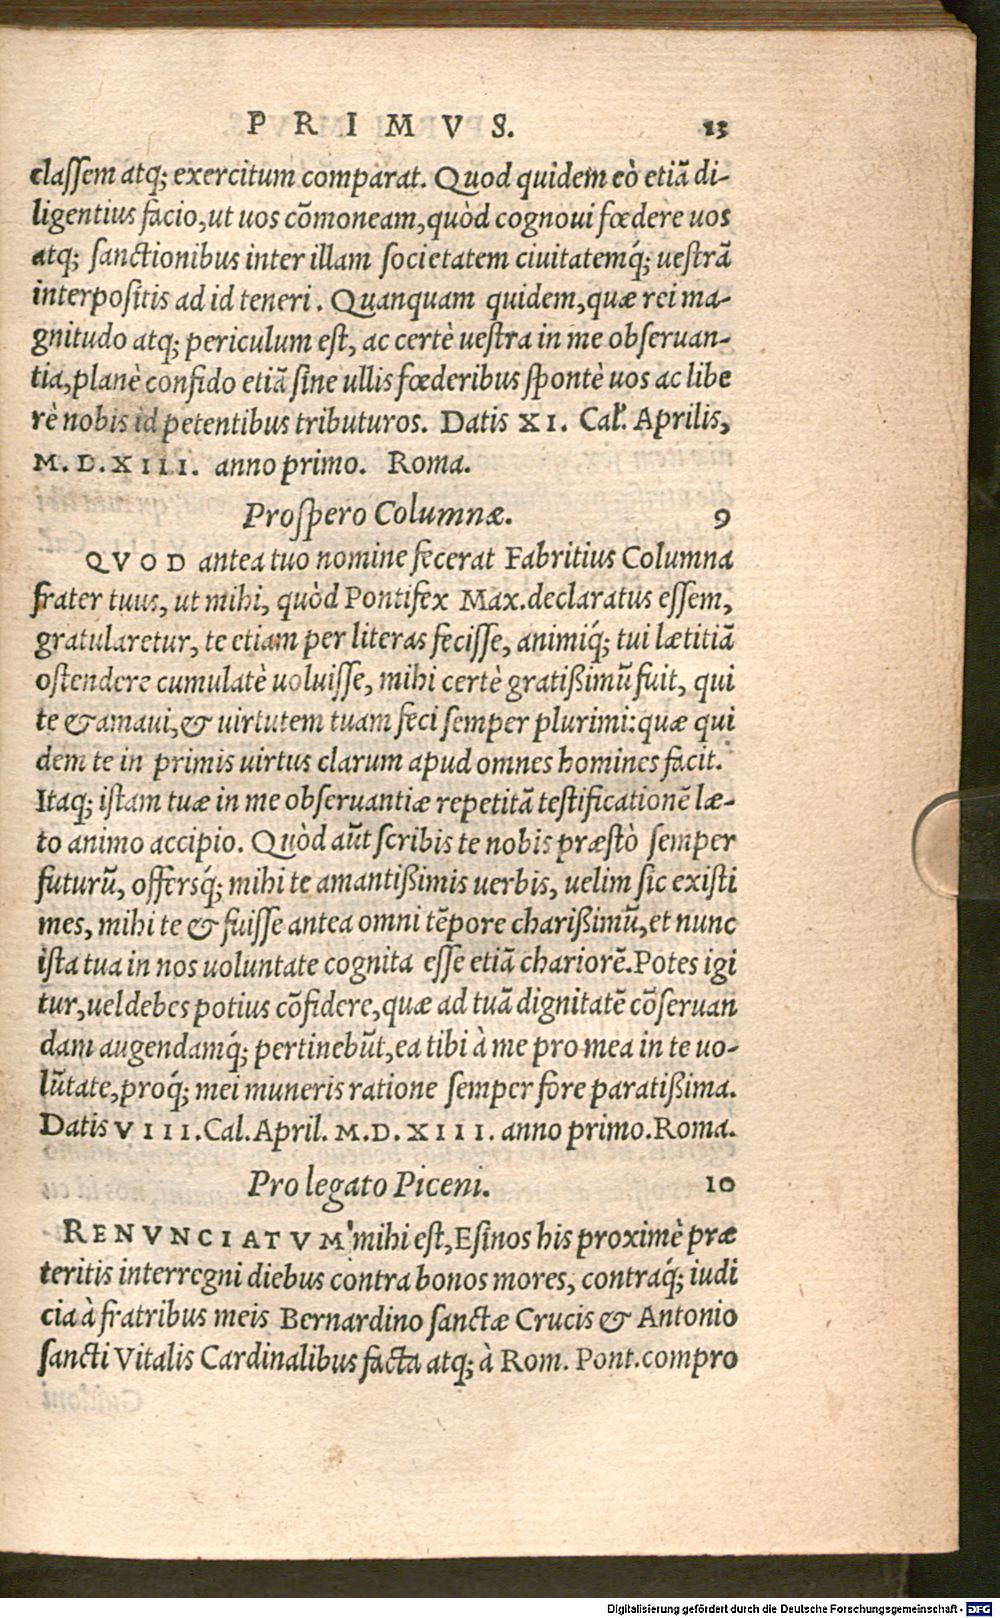 PRIMVS. 13
classem atq; exercitum comparat. Quod quidem eò etiã di-
ligentius facio, ut uos cõmoneam, quòd cognoui fœdere uos
atq; sanctionibus inter illam societatem ciuitatemq́; uestrã
interpositis ad id teneri. Quanquam quidem, quæ rei ma-
gnitudo atq; periculum est, ac certè uestra in me obseruan-
tia, planè confido etiã sine ullis fœderibus spontè uos ac libe
rè nobis id petentibus tributuros. Datis XI. Cal. Aprilis,
M. D. XIII. anno primo. Roma.
Prospero Columnæ. 9
QVOD antea tuo nomine fecerat Fabritius Columna
frater tuus, ut mihi, quòd Pontifex Max. declaratus essem,
gratularetur, te etiam per literas fecisse, animiq́; tui lætitiã
ostendere cumulatè uoluisse, mihi certè gratißimũ fuit, qui
te & amaui, & uirtutem tuam feci semper plurimi: quæ qui
dem te in primis uirtus clarum apud omnes homines facit.
Itaq; istam tuæ in me obseruantiæ repetitã testificationẽ læ-
to animo accipio. Quòd aũt scribis te nobis præstò semper
futurũ, offersq́; mihi te amantißimis uerbis, uelim sic existi
mes, mihi te & fuisse antea omni tẽpore charißimũ, et nunc
ista tua in nos uoluntate cognita esse etiã chariorẽ. Potes igi
tur, uel debes potius cõfidere, quæ ad tuã dignitatẽ cõseruan
dam augendamq́; pertinebũt, ea tibi à me pro mea in te uo-
lũtate, proq́; mei muneris ratione semper fore paratißima.
Datis VIII. Cal. April. M. D. XIII. anno primo. Roma.
Pro legato Piceni. 10
RENVNCIATVM mihi est, Esinos his proximè præ
teritis interregni diebus contra bonos mores, contraq́; iudi
cia à fratribus meis Bernardino sanctæ Crucis & Antonio
sancti Vitalis Cardinalibus facta atq; à Rom. Pont. compro
Digitalisierung gefördert durch die Deutsche Forschungsgemeinschaft - DFG